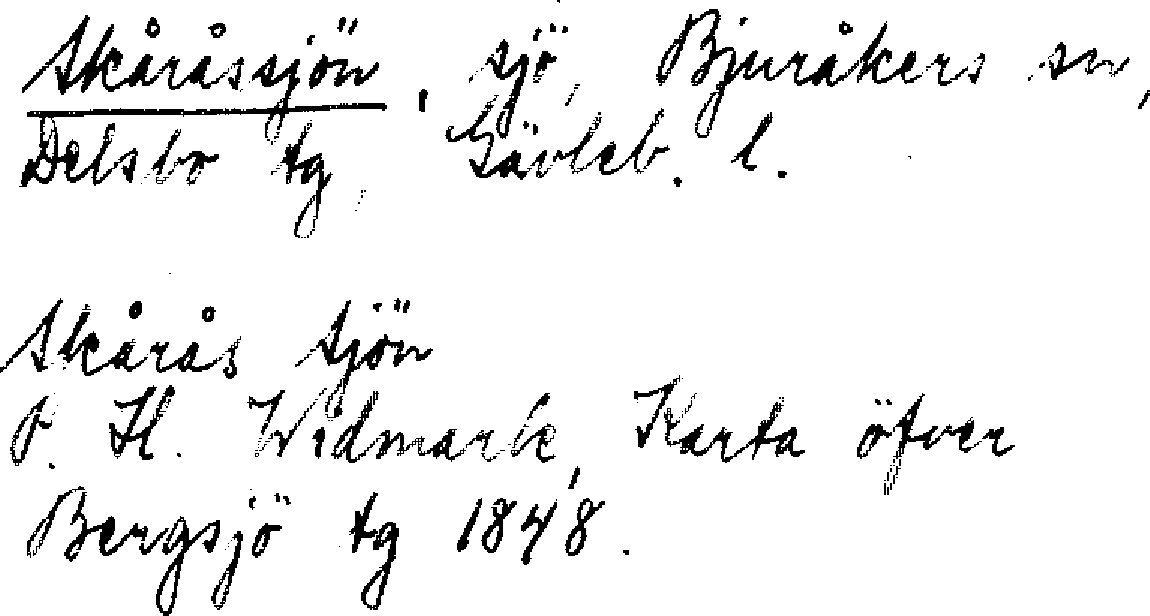 Skåråssjön, sjö, Bjuråkers sn,
Delsbo tg, Gävleb. l.
Skårås sjön
P. H. Widmark, Karta öfver
Bergsjö tg 1848.